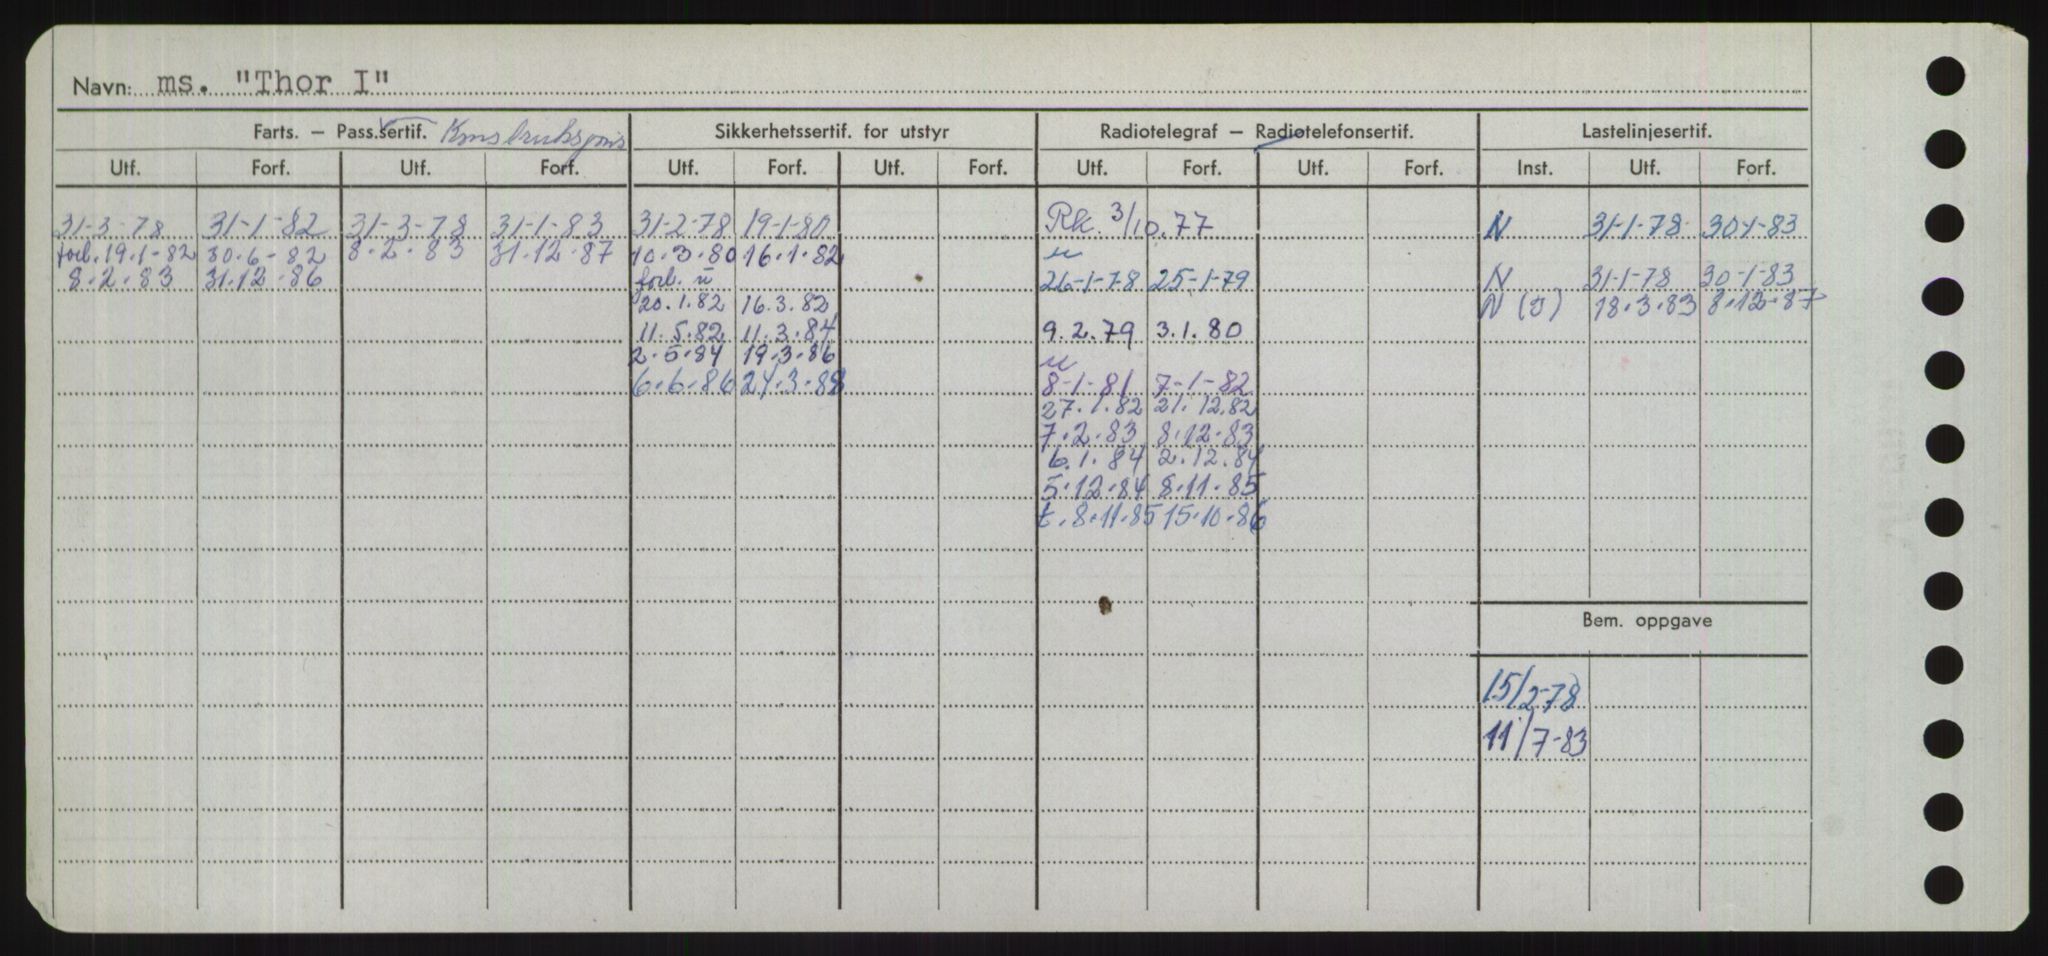 Navn: ms. "Thor I"
Farts. – Pass.sertif. Sikkerhetssertif. for utstyr Radiotelegraf – Radiotelefonsertif. Lastelinjesertif.
Utf. Forf. Utf. Forf. Utf. Forf. Utf. Forf. Utf. Forf. Utf. Forf. Inst. Utf. Forf.
31-3-78 31-1-82 31-3-78 31-1-83 31-2-78 19-1-80 Rk. 3/10.77 N 31-1-78 30-1-83
forl. 19.1-82 30.6-82 8.2.83 31.12.87 10.3.80 16.1.82 u
8.2.83 31.12.86 forl. u 26-1-78 25-1-79 N 31-1-78 30-1-83
20.1.82 16.3.82 N (s) 18.3.83 8.12.87
11.5.82 11.3.84 9.2.79 3.1.80
2.5.84 19.3.86 u
6.6.86 24.3.88 8-1-81 7-1-82
27.1.82 21.12.82
7.2.83 8.12.83
6.1.84 2.12.84
5.12.84 8.11.85
t. 8.11.85 15.10.86
Bem. oppgave
15/2-78
11/7-83